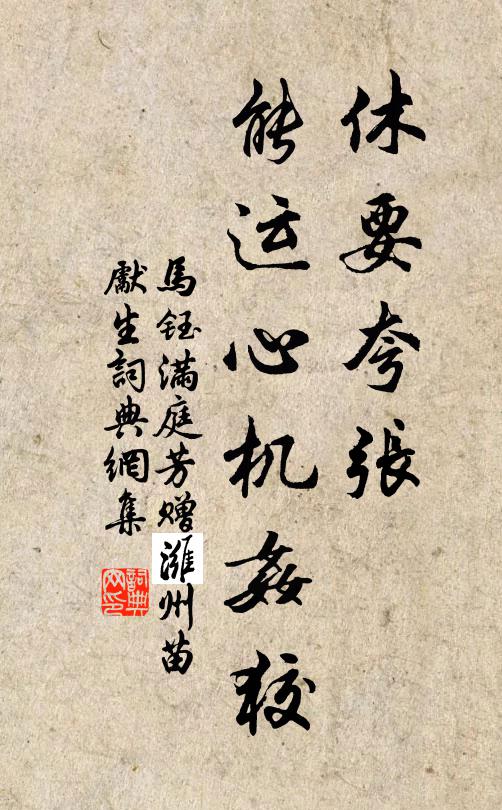 休要夸張
能运心机姦狡
馬鈺滿庭芳赠濰州苗
獻生詞典網集
詞典网印